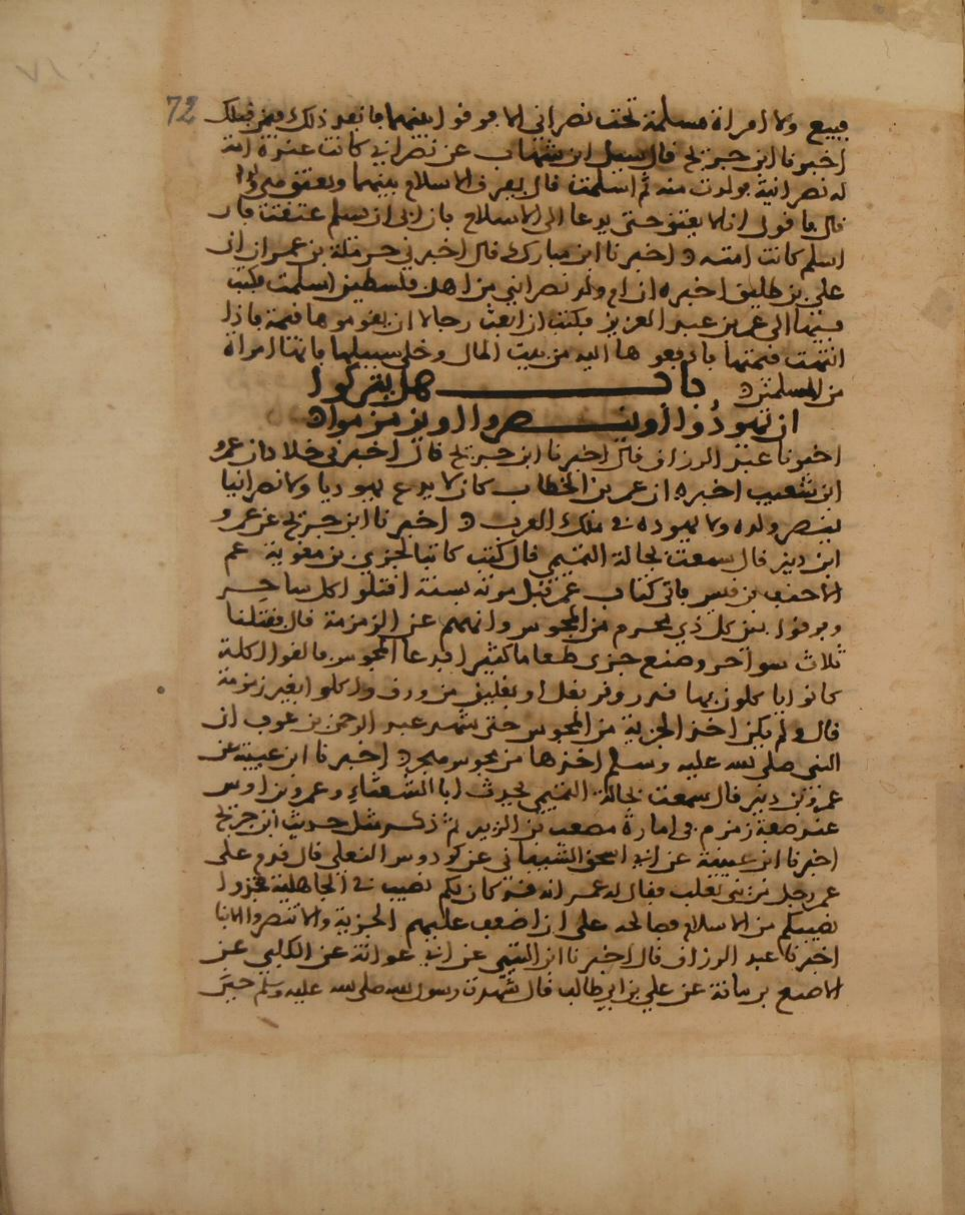 72
فبيع ولا امراة مسلمة تحت نصراني الا فرقوا بينهما فانفذ ذلك فيمن قبلك
اخبرنا ابن جريج قال سيل ابن شهاب عن نصراني كانت عنده امة
له نصرانية فولدت منه ثم اسلمت قال يفرق الاسلام بينهما وتعتق هي
قال فاقول انا لا تعتق حتى يدعا الى الاسلام فان ابى ان يسلم عتقت فان
اسلم كانت امته و اخبرنا ابن مبارك قال اخبرني حرملة بن عمران ان
علي بن طليق اخبره ان ام ولد نصراني من اهل فلسطين اسلمت فكتب
فيها الى عمر بن عبد العزيز فكتب ان ابعث رجالا ان يقوموها قيمة فاذا
انتهت قيمتها فادفعوها اليه من بيت المال وخل سبيلها فانها امراة
من المسلمين باب هل يتركوا
ان يهودوا او ينصروا او يزمزموا
اخبرنا عبد الرزاق قال اخبرنا ابن جريج قال اخبرني خلاد ان عمرو
ابن شعيب اخبره ان عمر بن الخطاب كان لا يدع يهوديا ولا نصرانيا
ينصر ولده ولا يهوده في ملك العرب و اخبرنا ابن جريج عن عمرو
ابن دينر قال سمعت بجالة التميمي قال كنت كاتبا لجزي بن معوية عم
الاحنف بن قيس فاتى كتاب عمر قبل موته بسنة اقتلوا كل ساحر
وفرقوا بين كل ذي محرم من المجوس وانههم عن الزمزمة قال فقتلنا
ثلاث سواحر وصنع جزى طعاما كثيرا فدعا المجوس فالقوا اكلة
كانوا ياكلون بها قدر وقر بغل او بغلين من ورق واكلوا بغير زمزمة
قال ولم يكن اخذ الجزية من المجوس حتى شهد عبد الرحمن بن عوف ان
النبي صلى الله عليه وسلم اخذها من مجوس هجر و اخبرنا ابن عيينة عن
عمرو بن دينر قال سمعت بجالة التميمي يحدث ابا الشعثاء وعمرو بن اوس
عند صفة زمزم في امارة مصعب بن الزبير ثم ذكر مثل حديث ابن جريج
اخبرنا ابن عيينة عن ابي اسحق الشيباني عن كردوس التغلبي قال قدم على
عمر رجل من بني تغلب فقال له عمر انه قد كان لكم نصيب في الجاهلية فخذوا
نصيبكم من الاسلام فصالحه على ان اضعف عليهم الجزية والا ينصروا الابنا
اخبرنا عبد الرزاق قال اخبرنا ابن التيمي عن ابي عوانة عن الكلبي عن
الاصبغ بن نباتة عن علي بن ابي طالب قال شهدت رسول الله صلى الله عليه وسلم حين